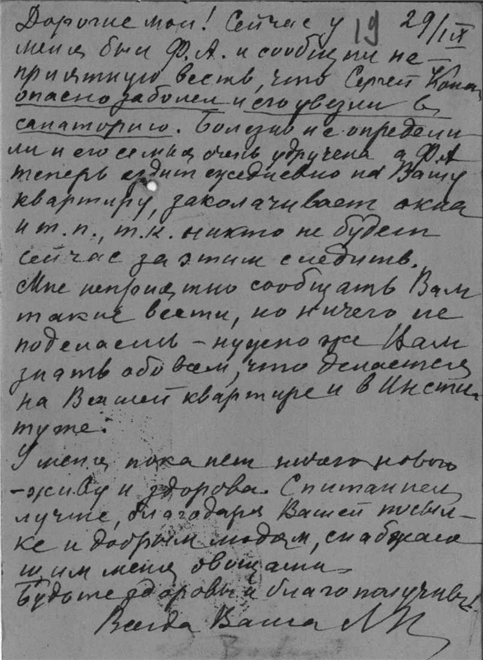 Дорогие мои! Сейчас у 19 29/IX
меня был Ф.А. и сообщил не-
приятную весть, что Сергей
опасно заболел и его увезли в
санаторию. Болезнь не определи
ли и его семья очень удручена а ФА
теперь ездит ежедневно на Вашу
квартиру, заколачивает окна
и т.п., т.к. никто не будет
сейчас за этим следить.
Мне неприятно сообщать Вам
такие вести, но ничего не
поделаешь – нужно же Вам
знать обо всем, что делается
на Вашей квартире и в Инсти-
туте.
У меня пока нет ничего нового
– живу и здорова. С питанием
лучше, благодаря Вашей посыл-
ке и добрым людям, снабжаю
щим меня овощами.
Будьте здоровы и благополучны!
Всегда Ваша